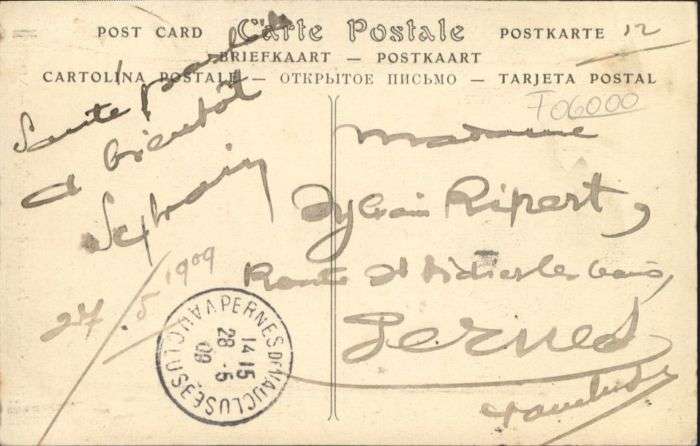 POST CARD Carte Postale POSTKARTE
BRIEFKAART — POSTKAART
CARTOLINA POSTALE — ОТКРЫТОЕ ПИСЬМО — TARJETA POSTAL
12
F 06000
Santé
à bientôt
27/5 1909
Madame
Sylvain Ripert,
Route St Didier les bains,
Pernes
Vaucluse
PERNES DE VAUCLUSE
VAUCLUSE
14 15
28 - 5
09